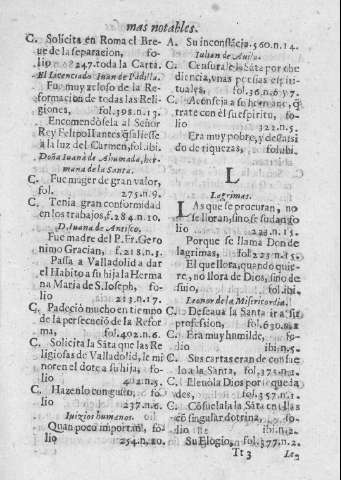 mas notables.
C. Solicita en Roma el Bre-
ue de la separacion, fo-
lio 247.toda la Carta.
El Licenciado Iuan de Padilla.
Fue muy zeloso de la Re-
formacion de todas las Reli-
giones, fol.398.n.13.
Encomendòsela al Señor
Rey Felipo II antes q̃ saliesse
a la luz del Carmen, fol.ibi.
Doña Iuana de Ahumada, her-
mana de la Santa.
C. Fue muger de gran valor,
fol. 275.n.9.
C. Tenia gran conformidad
en los trabajos, f.284.n.10.
D. Iuana de Antisco.
Fue madre del P. Fr. Gero
nimo Gracian, f.218.n.5.
Passa a Valladolid a dar
el Habito a su hija la Herma
na Maria de S. Ioseph, fo-
lio 213.n.17.
C. Padeciò mucho en tiempo
de la persecució de la Refor
ma, fol.402.n.6.
C. Solicita la Sãta que las Re
ligiosas de Valladolid, le mi
noren el dote a su hija, fo-
lio 402.n.5.
C. Hazenlo con gusto, fo-
lio 237.n.6.
Iuizios humanos.
Quan poco importan, fo-
lio 254.n.20.
A. Su inconstãcia.560.n.14.
Iulian de Auila.
C. Censurale la Sãta por obe
diencia, vnas poesias espiri-
tuales, fol.36.n.6.y 7.
C. Aconseja a su hermano, q̃
trate con èl su espiritu, fo-
lio 322.n.5.
Era muy pobre, y desasi
do de riquezas, fol.ibi.
L
Lagrimas.
LAs que se procuran, no
se lloran, sino se sudan, fo
lio 223.n.15.
Porque se llama Don de
lagrimas, fol 223.n.15.
El que llora, quando quie-
re, no llora de Dios, sino de
suio, fol.ibi.
Leonor de la Misericordia.
C. Deseaua la Santa ir a su
profession, fol.630.n.2
C. Era muy humilde, fo-
lio ibi.n.5.
C. Sus cartas eran de consue
lo a la Santa, fol.375.n.2.
C. Eleuòla Dios por
des, fol.357.n.1.
C. Cõsuelala la Sãta en ellas
cõ singular dotrina, fo-
lio ibi.n.2.
Su Elogio, fol.377.n.2.
Tt 3